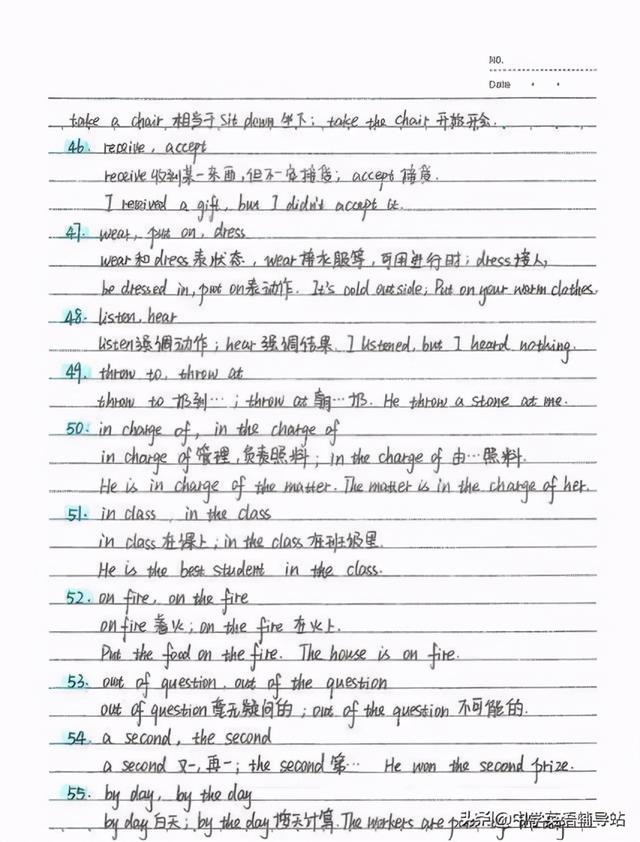 No.
Date
take a chair 相当于 sit down 坐下; take the chair 开始开会.
46. receive, accept
receive 收到某一东西, 但不一定接受; accept 接受.
I received a gift, but I didn't accept it.
47. wear, put on, dress
wear 和 dress 表状态, wear 接衣服等, 可用进行时; dress 接人,
be dressed in, put on 表动作. It's cold outside; Put on your warm clothes.
48. listen, hear
listen 强调动作; hear 强调结果. I listened, but I heard nothing.
49. throw to, throw at
throw to 扔到…; throw at 朝…扔. He throw a stone at me.
50. in charge of, in the charge of
in charge of 管理, 负责照料; in the charge of 由…照料.
He is in charge of the matter. The matter is in the charge of her.
51. in class, in the class
in class 在课上; in the class 在班级里.
He is the best student in the class.
52. on fire, on the fire
on fire 着火; on the fire 在火上.
Put the food on the fire. The house is on fire.
53. out of question, out of the question
out of question 毫无疑问的; out of the question 不可能的.
54. a second, the second
a second 又一, 再一; the second 第… He won the second prize.
55. by day, by the day
by day 白天; by the day 按天计算. The workers are
头条@中学英语辅导站